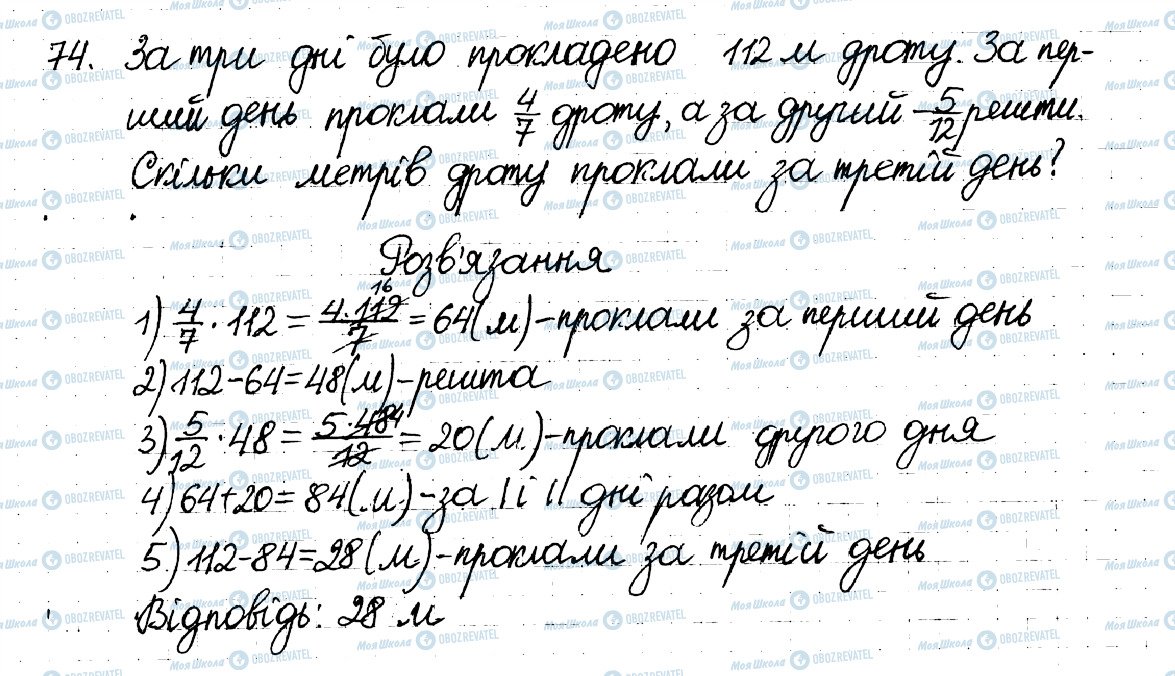 74. За три дні було прокладено 112 м дроту. За пер-
ший день проклали 4/7 дроту, а за другий - 5/12 решти.
Скільки метрів дроту проклали за третій день?
Розв'язання
1) 4/7 · 112 = 4·112/7 = 64(м) - проклали за перший день
2) 112 - 64 = 48(м) - решта
3) 5/12 · 48 = 5·48/12 = 20(м) - проклали другого дня
4) 64 + 20 = 84(м) - за I і II дні разом
5) 112 - 84 = 28(м) - проклали за третій день
Відповідь: 28 м